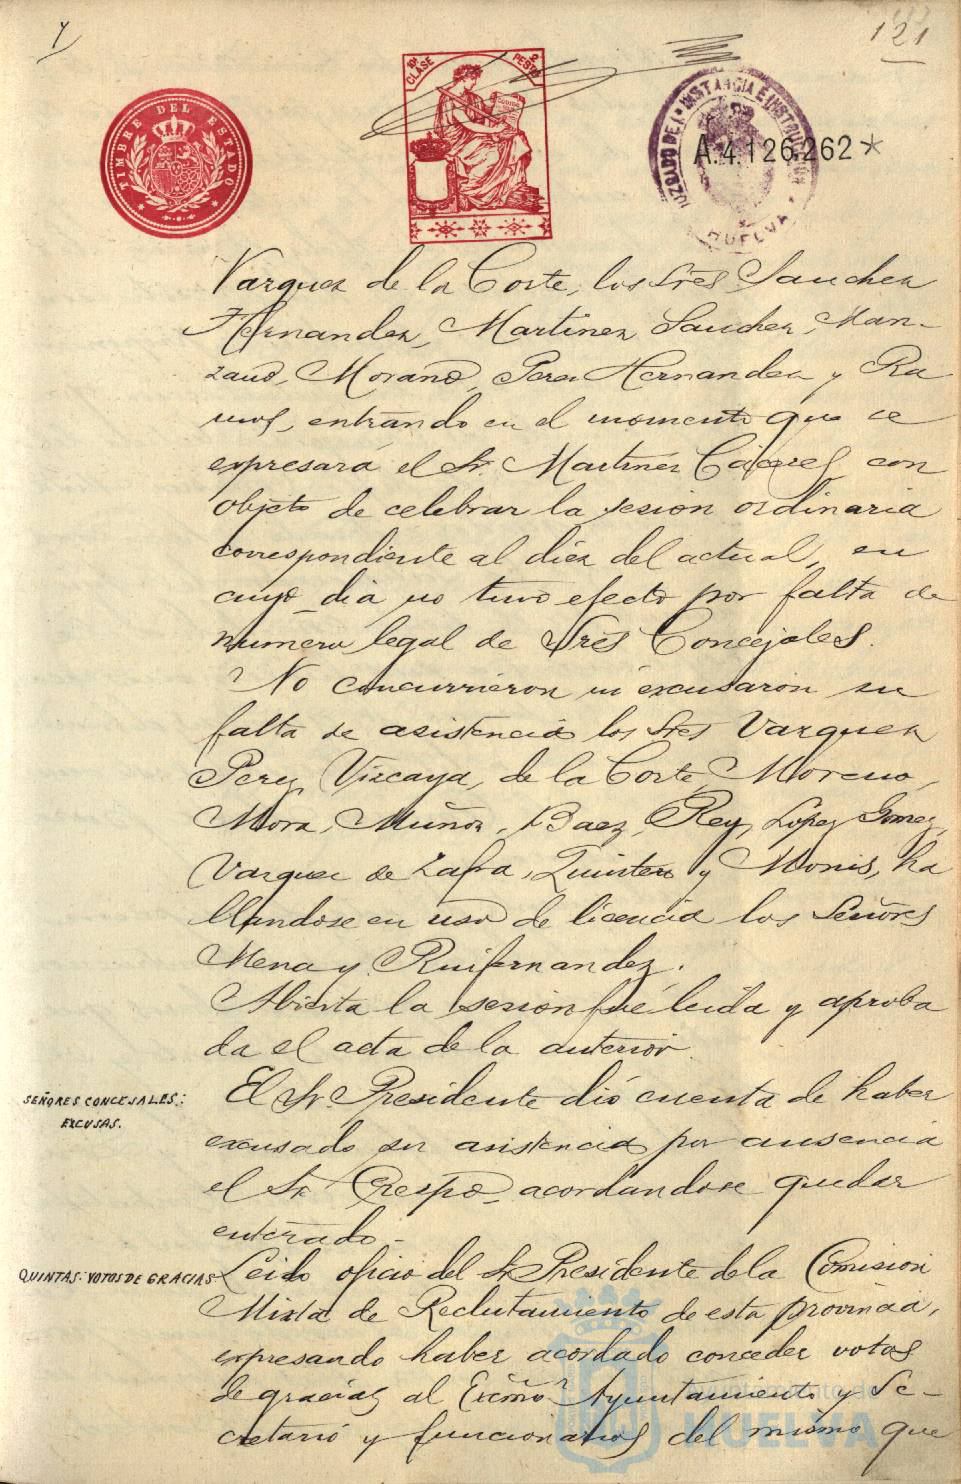 Y
121
TIMBRE DEL ESTADO
10ª CLASE
2 PESTAS
JUZGADO DE 1ª INSTANCIA E INSTRUCCION
HUELVA
A.4.126.262*
Vazquez de la Corte, los Sres Sanchez
Hernandez, Martinez Sanchez, Man-
zano, Morano, Perez Hernandez y Ra
mos, entrando en el momento que se
expresará el Sr. Martinez Cáceres, con
objeto de celebrar la sesion ordinaria
correspondiente al diez del actual, en
cuyo dia no tuvo efecto por falta de
numero legal de Sres Concejales.
No concurrieron ni excusaron su
falta de asistencia los Sres Vazquez
Perez, Vizcaya, de la Corte, Moreno,
Mora, Muñoz, Baez, Rey, López Gómez,
Vazquez de Zafra, Quintero y Monis, ha
llandose en uso de licencia los Señores
Mena y Ruifernandez.
Abierta la sesion fué leida y aproba
da el acta de la anterior.
SEÑORES CONCEJALES:
EXCUSAS.
El Sr. Presidente dió cuenta de haber
excusado su asistencia por ausencia
el Sr Crespo, acordandose quedar
enterado-
QUINTAS: VOTOS DE GRACIAS
Leido oficio del Sr Presidente de la Comision
Mixta de Reclutamiento de esta provincia,
expresando haber acordado conceder votos
de gracias al Excmo Ayuntamiento y Se-
cretario y funcionarios del mismo que
Ayuntamiento de
HUELVA